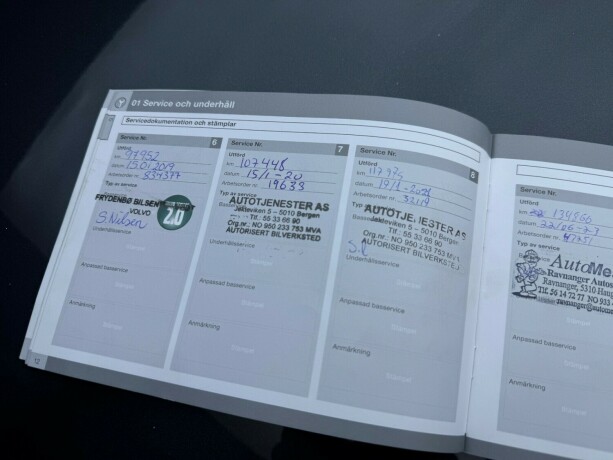 01 Service och underhåll
Servicedokumentation och stämplar
Service Nr. 6
Utförd
km 97952
datum 15.01.2019
Arbetsorder nr
Typ av service
FRYDENBØ BILSEN
VOLVO
2.0
S Nilsen
Underhållsservice
Stämpel
Anpassad basservice
Stämpel
Anmärkning
Stämpel
12
Service Nr. 7
Utförd
km 107448
datum 15/1-20
Arbetsorder nr 19633
Typ av service
AUTOTJENESTER AS
Jekteviken 5 – 5010 Bergen
Tlf. 55 33 66 90
Org.nr.: NO 950 233 753 MVA
AUTORISERT BILVERKSTED
Underhållsservice
Stämpel
Anpassad basservice
Stämpel
Anmärkning
Stämpel
Service Nr. 8
Utförd
km
datum 19/1-2021
Arbetsorder nr 32119
Typ av service
AUTOTJE IESTER AS
Jekteviken 5 – 5010 Bergen
Tlf. 55 33 66 90
Org.nr.: NO 950 233 753 MVA
AUTORISERT BILVERKSTED
Underhållsservice
Stämpel
Anpassad basservice
Stämpel
Anmärkning
Stämpel
Service Nr.
Utförd
km
datum
Arbetsorder nr
Typ av service
AutoMe
Ravnanger Autos
Ravnanger, 5310 Hau
Tlf. 56 14 72 77 NO 933
ravnanger@autome
Anpassad basservice
Stämpel
Anmärkning
Stämpel